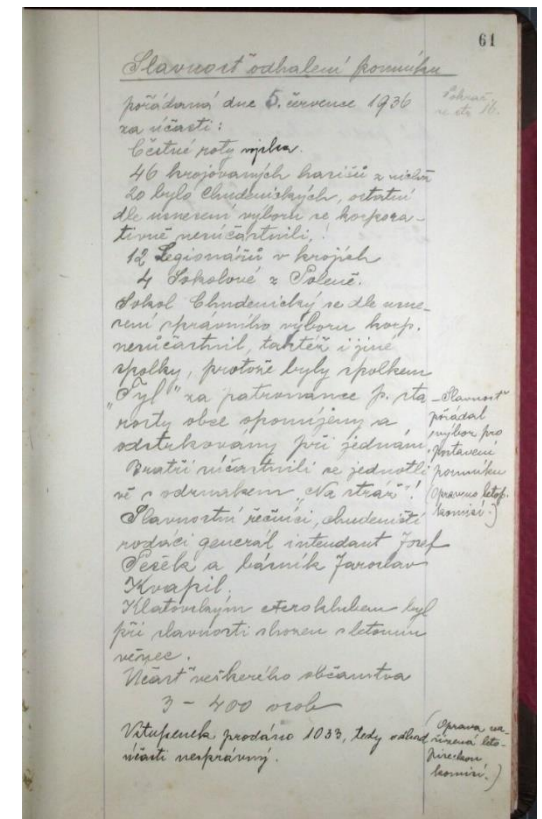 61
Slavnosť odhalení pomníku
pořádaná dne 5. července 1936
za účasti:
Čestné roty vojska.
46 krojovaných hasičů z nichž
20 bylo Chudenických, ostatní
dle usnesení výboru se korpora-
tivně nesúčastnili,
12 Legionářů v krojích
4 Sokolové z Poleně.
Sokol Chudenický se dle usne-
sení správního výboru korp.
nesúčastnil, taktéž i jiné
spolky, protože byly spolkem
"Tyl" za patronance p. sta-
rosty obce opomíjeny a
odstrkovány při jednání.
Bratři súčastnili se jednotli
vě s odznakem "Na stráž"!
Slavnostní řečníci, chudeničtí
rodáci generál intendant Josef
Pešek a básník Jaroslav
Kvapil,
Klatovským Aeroklubem byl
při slavnosti shozen s letounu
věnec.
Účasť veškerého občanstva
3 - 400 osob
Vstupenek prodáno 1033, tedy odhad
účasti nesprávný.
Pokrač.
na str.
Slavnosť
pořádal
výbor pro
postavení
pomníku
(Opraveno letop.
komisí.)
(Oprava na-
řízená leto-
piseckou
komisí.)